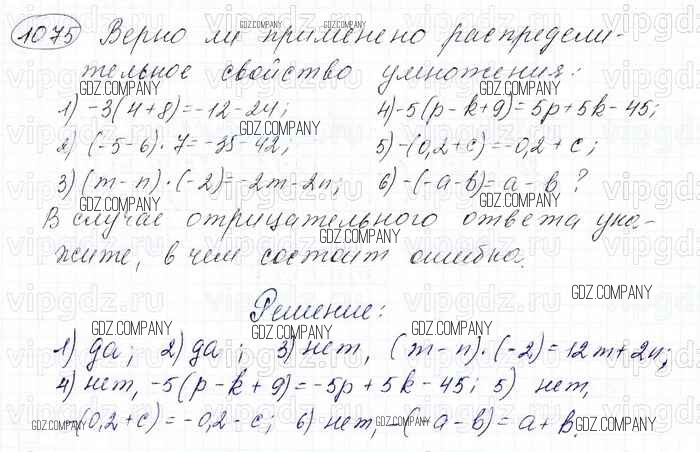 1075 Верно ли применено распредели-
тельное свойство умножения:
1) -3(4+8)=-12-24; 4)-5(p-k+9)=5p+5k-45;
2) (-5-6)·7=-35-42; 5)-(0,2+c)=-0,2+c;
3) (m-n)·(-2)=-2m-2n; 6)-(-a-b)=a-b?
В случае отрицательного ответа ука-
жите, в чем состоит ошибка.
Решение:
1) да; 2) да; 3) нет, (m-n)·(-2)=12m+2n;
4) нет, -5(p-k+9)=-5p+5k-45; 5) нет,
-(0,2+c)=-0,2-c; 6) нет, -(-a-b)=a+b.
GDZ.COMPANY
vipgdz.ru